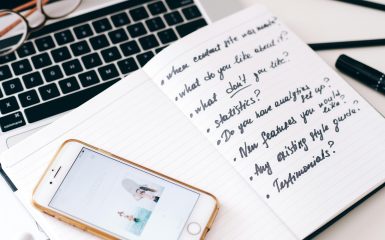 • Where current site was made?
• What do you like about it?
• What don't you like?
• Statistics?
• Do you have analytics set up?
• New features you would like?
• Any existing style guide?
• Testimonials?